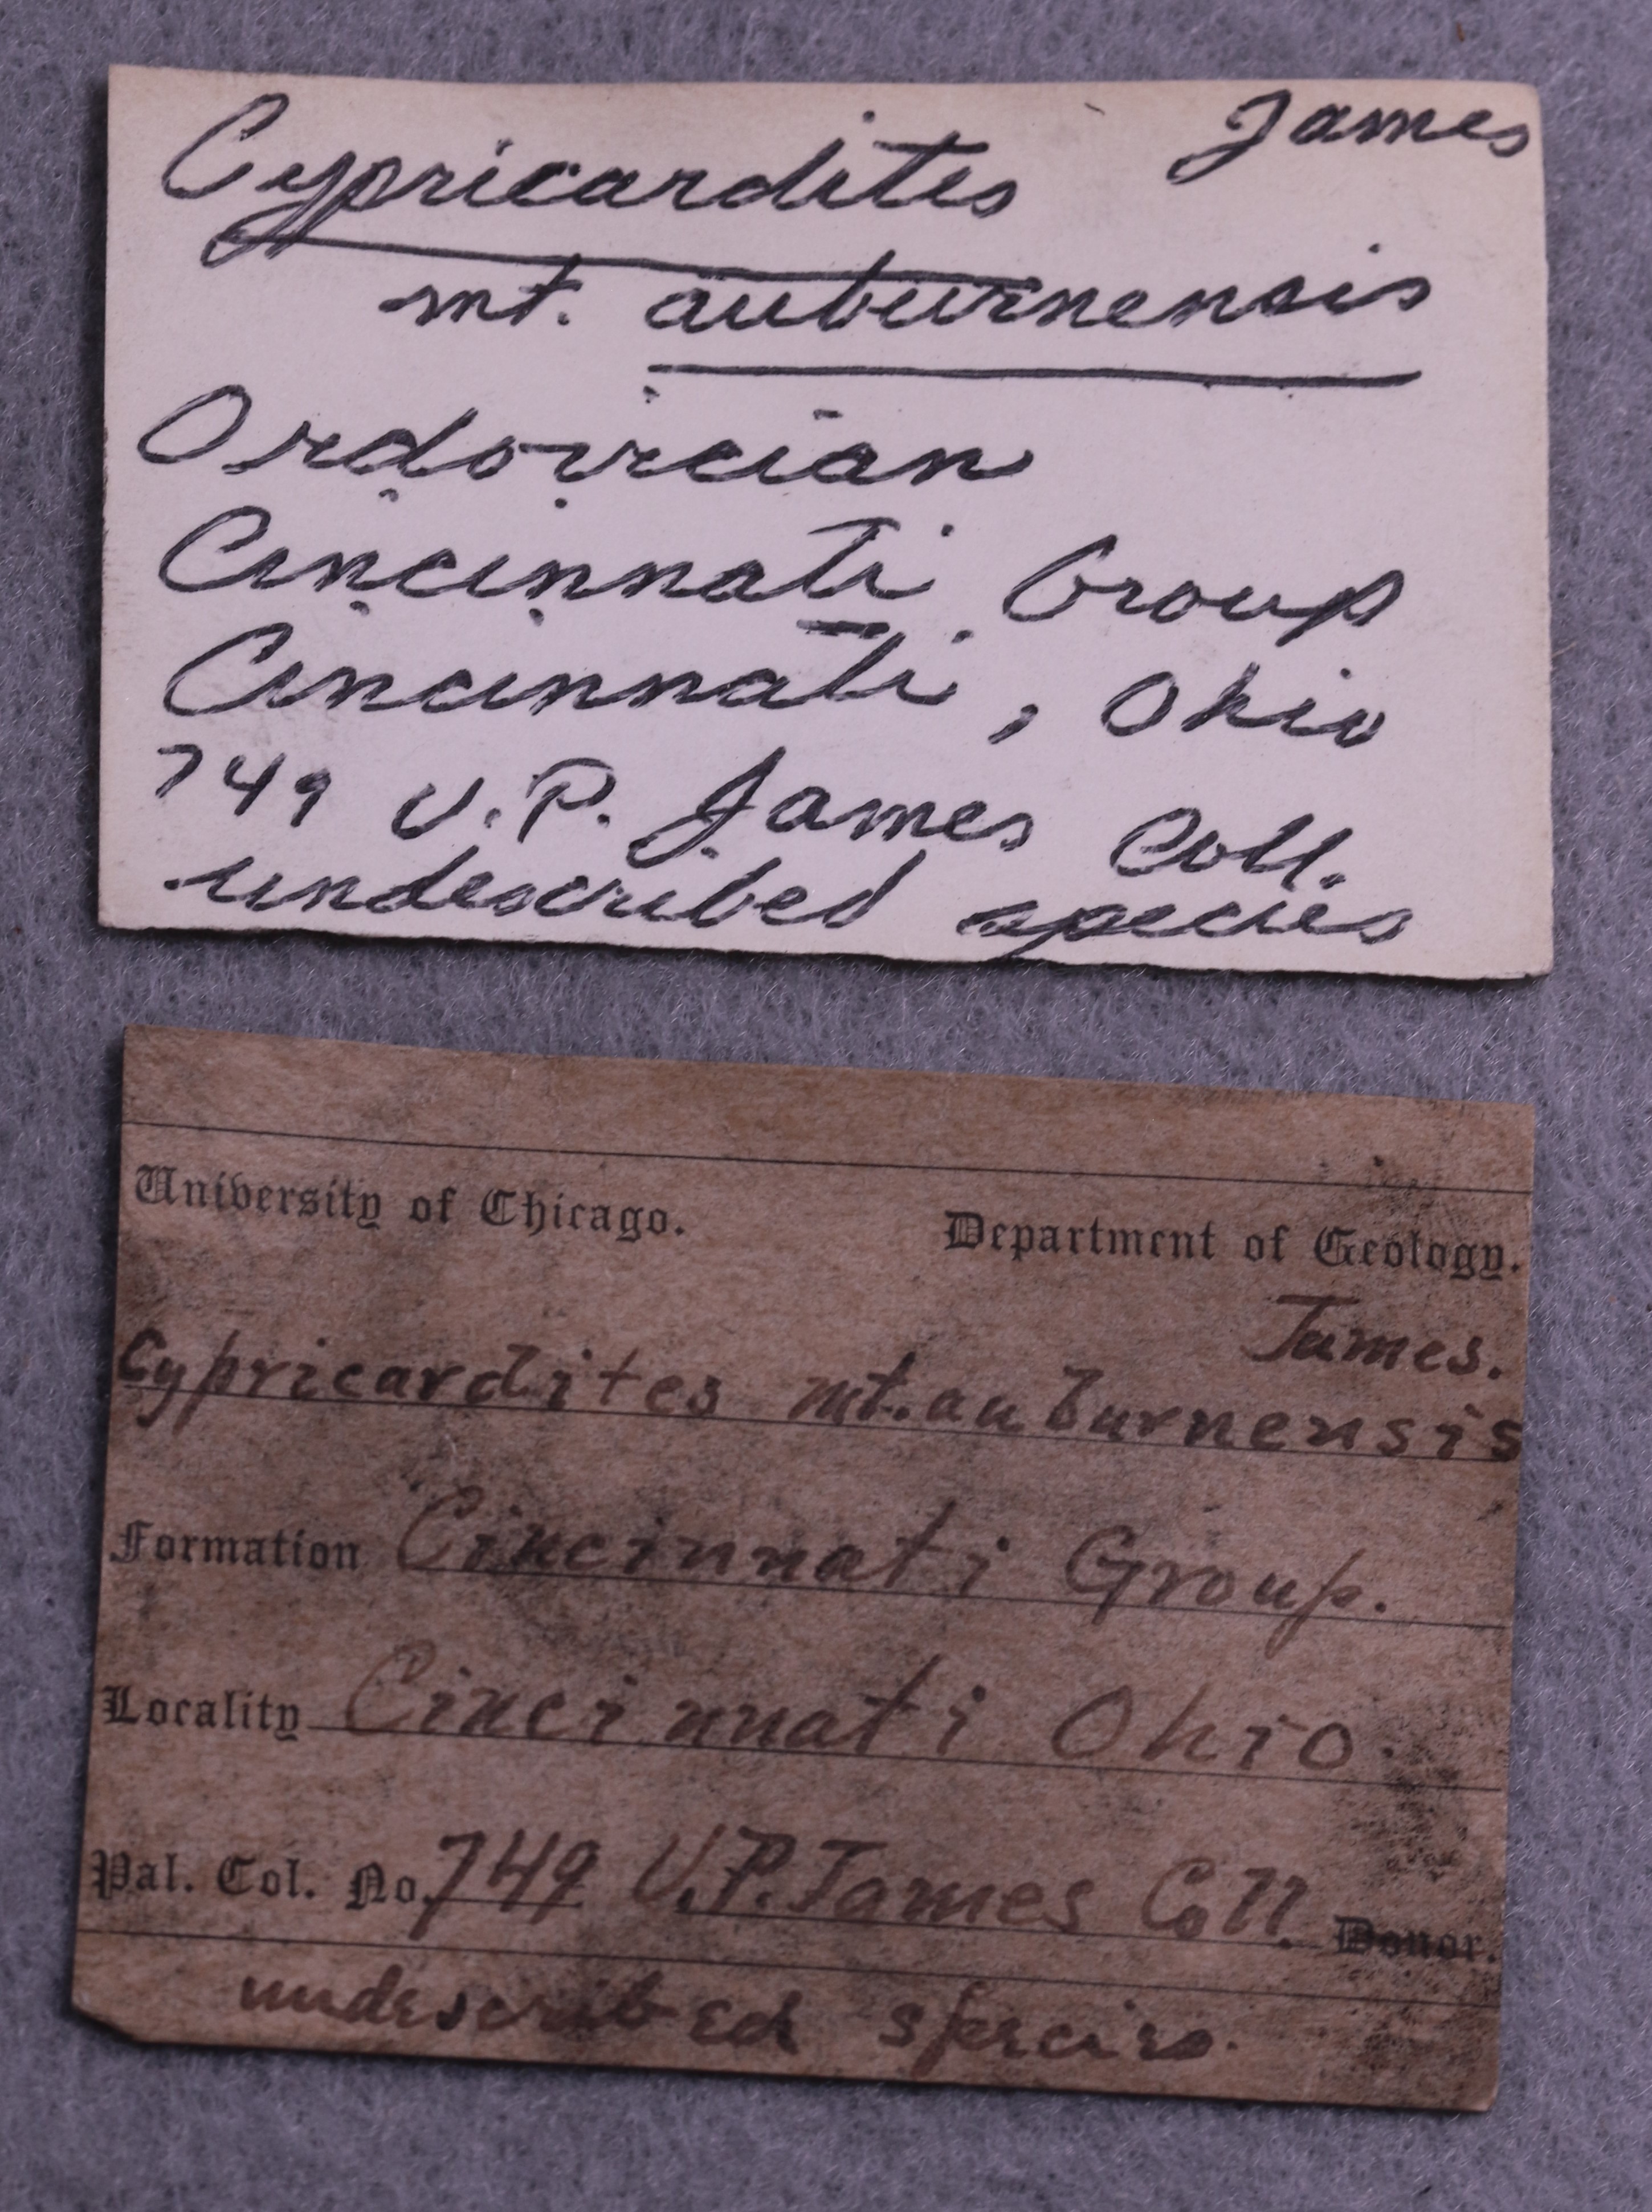 Cypricardites James
mt. auburnensis
Ordovician
Cincinnati Group
Cincinnati, Ohio
749 U.P. James Coll.
undescribed species
University of Chicago. Department of Geology.
James.
Cypricardites mt. auburnensis
Formation Cincinnati Group.
Locality Cincinnati Ohio
Pal. Col. No. 749 U.P. James Coll. Donor.
undescribed species.